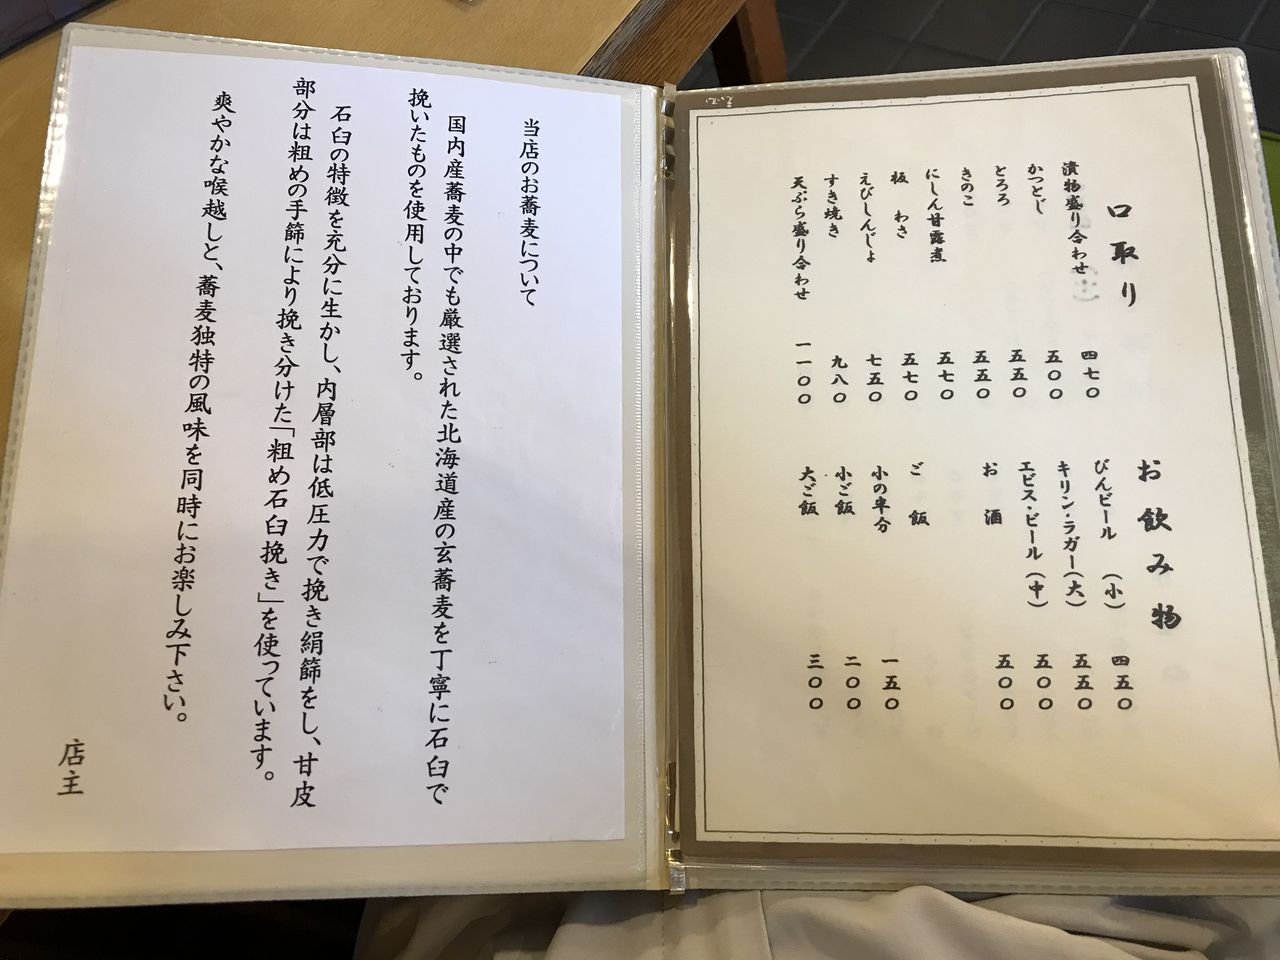 口取り
漬物盛り合わせ 四七〇
かつとじ 五〇〇
とろろ 五五〇
きのこ 五五〇
にしん甘露煮 五七〇
板わさ 五七〇
えびしんじょ 七五〇
すき焼き 九八〇
天ぷら盛り合わせ 一一〇〇
お飲み物
びんビール (小) 四五〇
キリン・ラガー(大) 五五〇
エビス・ビール(中) 五〇〇
お酒 五〇〇
ご飯
小の半分 一五〇
小ご飯 二〇〇
大ご飯 三〇〇
当店のお蕎麦について
国内産蕎麦の中でも厳選された北海道産の玄蕎麦を丁寧に石臼で
挽いたものを使用しております。
石臼の特徴を充分に生かし、内層部は低圧力で挽き絹篩をし、甘皮
部分は粗めの手篩により挽き分けた「粗め石臼挽き」を使っています。
爽やかな喉越しと、蕎麦独特の風味を同時にお楽しみ下さい。
店主